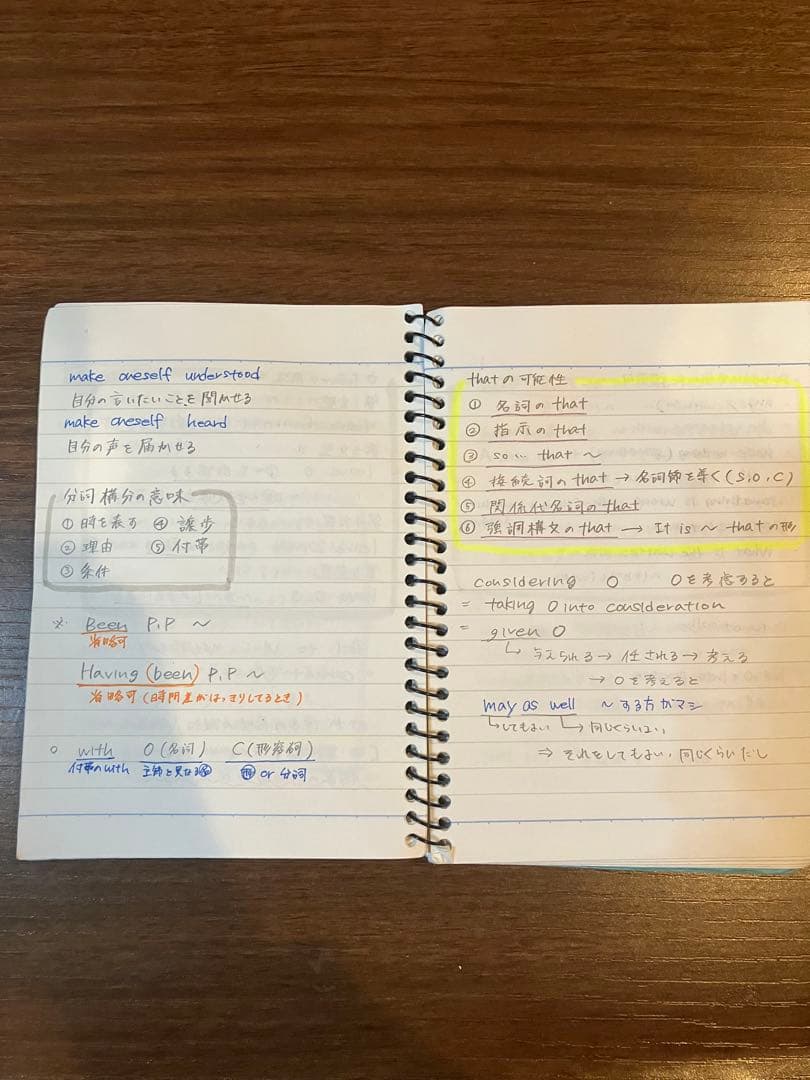 make oneself understood
自分の言いたいことを聞かせる
make oneself heard
自分の声を届かせる
分詞構分の意味
① 時を表す ④ 譲歩
② 理由 ⑤ 付帯
③ 条件
※ Been P.P ~
省略可
Having (been) P.P ~
省略可 (時間差がはっきりしてるとき)
○ with O (名詞) C (形容詞)
付帯のwith 主節と異なる名 形 or 分詞
thatの可能性
① 名詞の that
② 指示の that
③ so … that ~
④ 接続詞の that → 名詞節を導く (S, O, C)
⑤ 関係代名詞の that
⑥ 強調構文のthat → It is ~ thatの形
considering O Oを考慮すると
= taking O into consideration
= given O
→ 与えられる → 任される → 考える
→ Oを考えると
may as well ~する方がマシ
→してもよい → 同じくらいよい
⇒ それをしてもよい、同じくらいだし